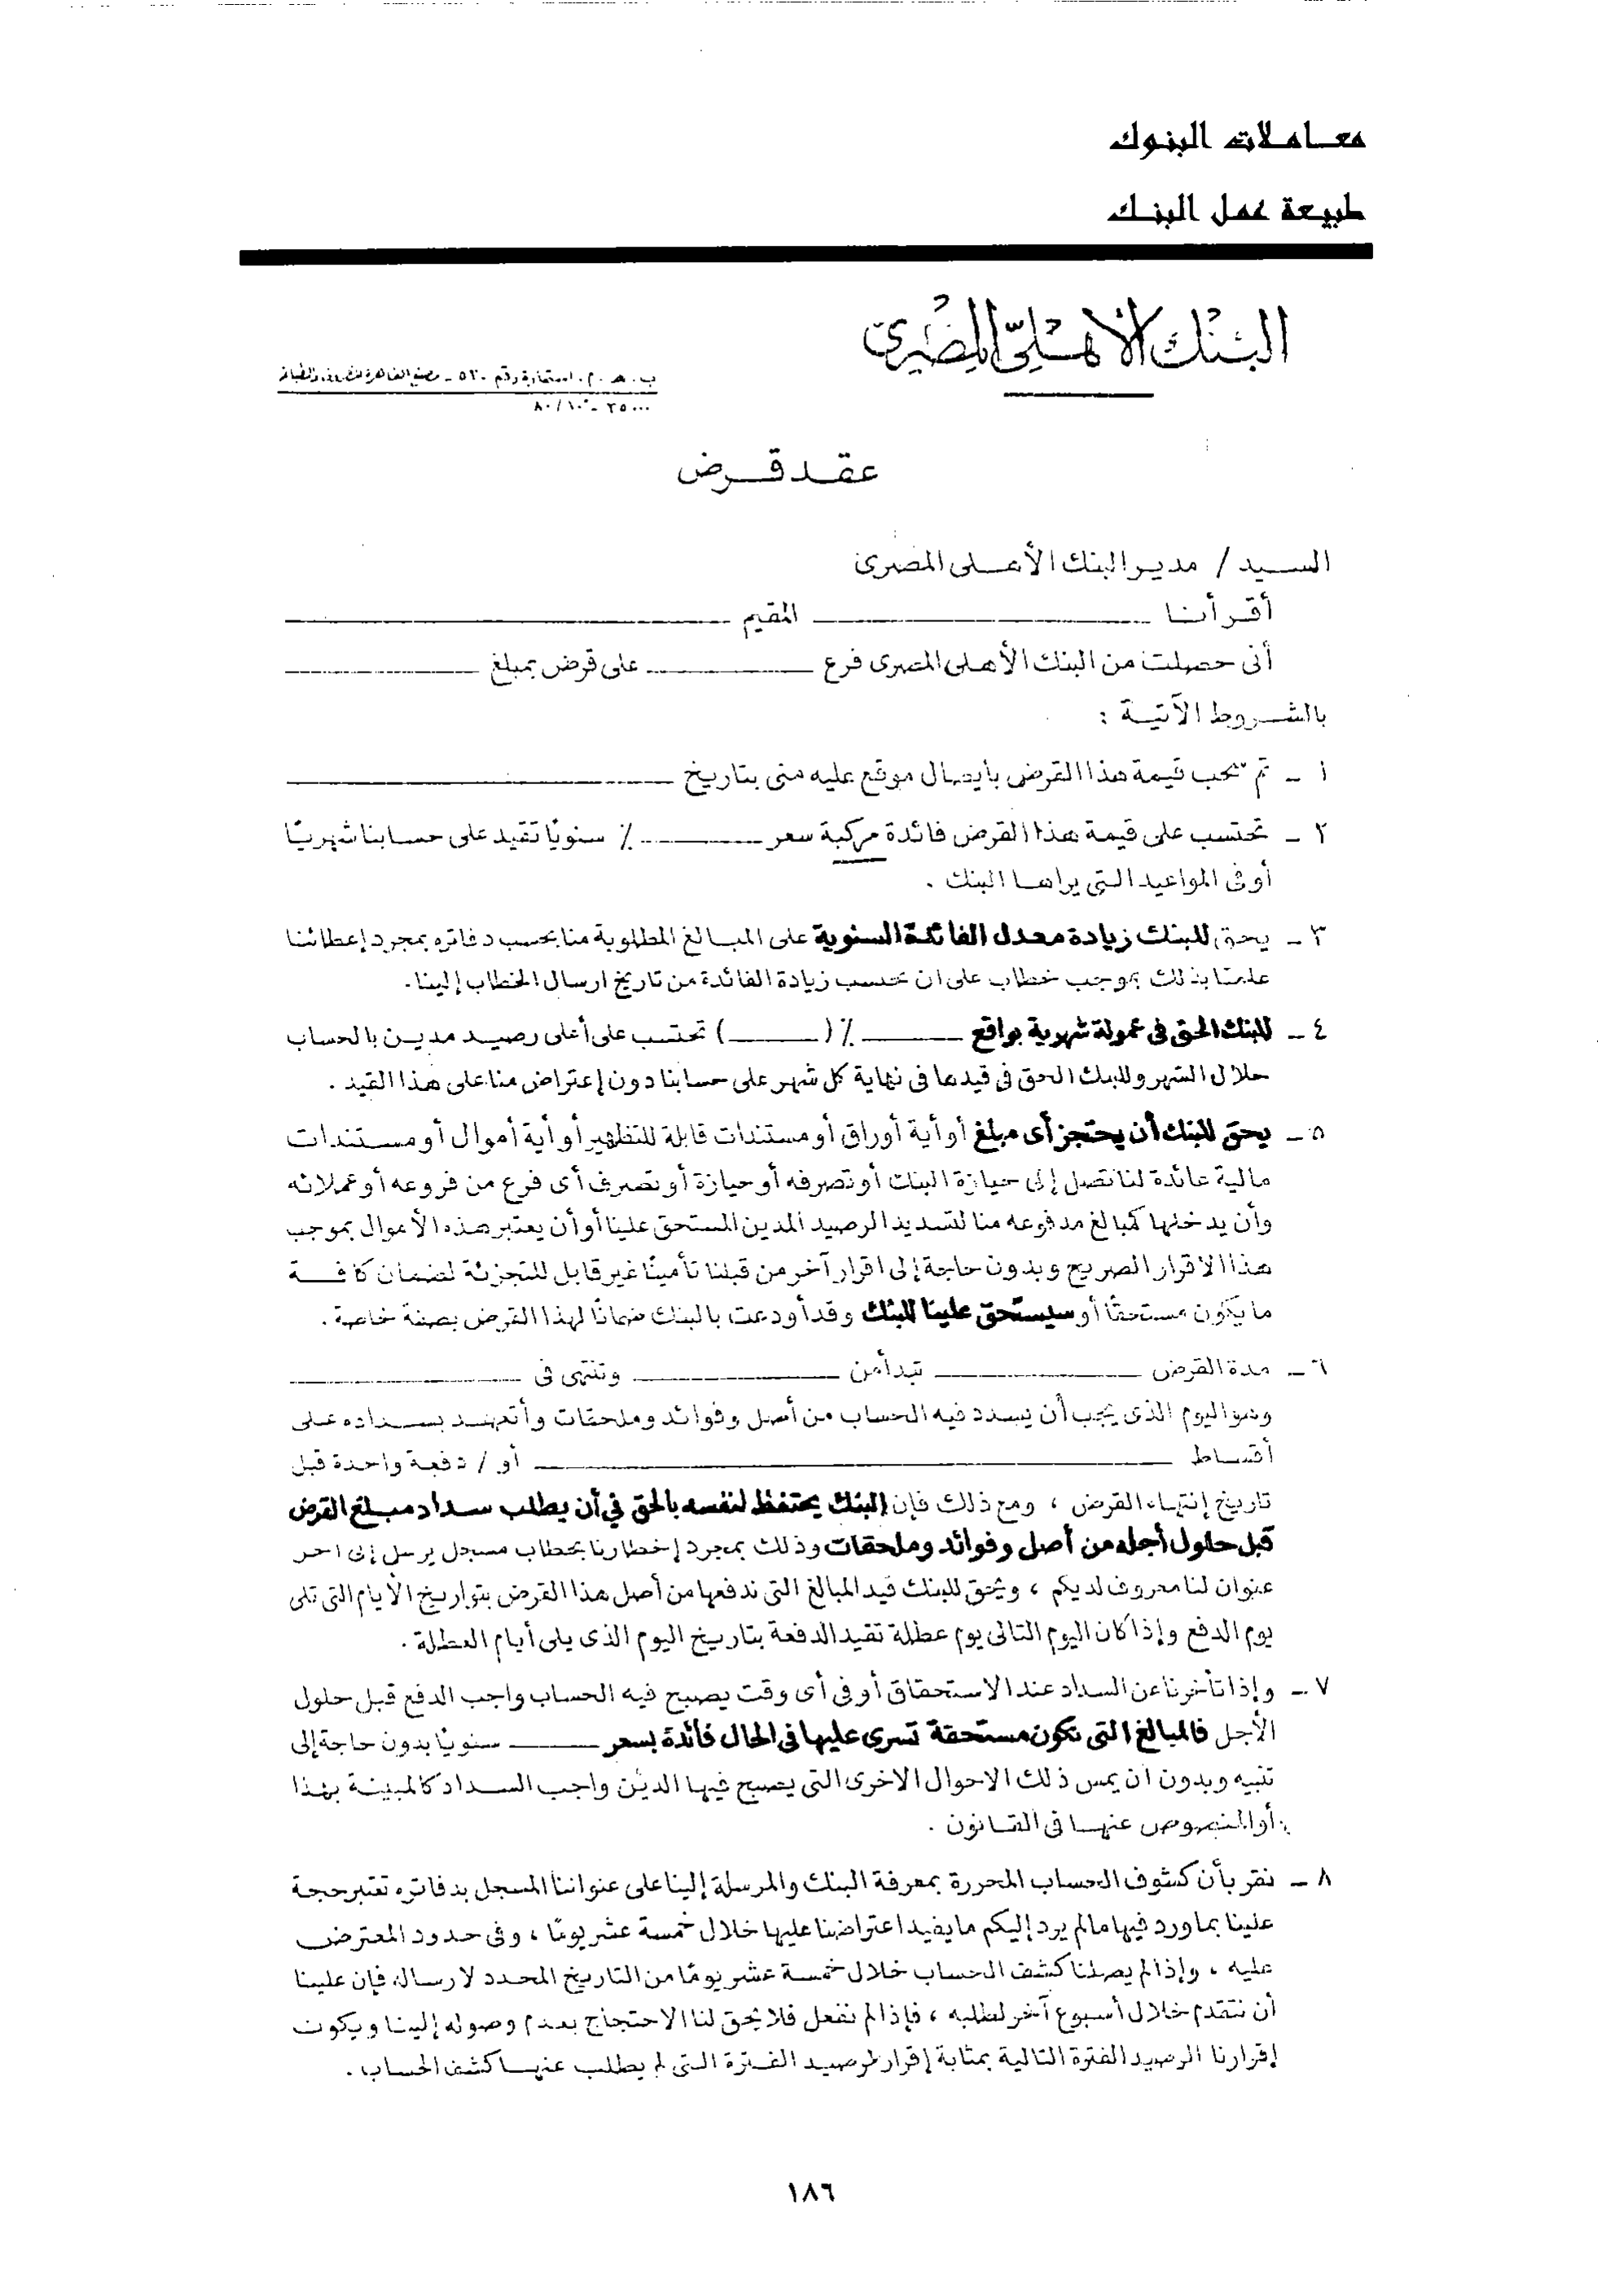 معاملات البنوك
طبيعة عمل البنك
البنك الأهلي المصري
ب . هـ . م . استمارة رقم ٥٢٠ - مصنع القاهرة
٨٠/١٠ - ٢٥٠٠٠
عقد قرض
السيد / مدير البنك الأهلى المصرى
أقر أنا ــــــ المقيم ــــــ
أنى حصلت من البنك الأهلى المصرى فرع ــــــ على قرض بمبلغ ــــــ
بالشروط الآتية :
١ - تم سحب قيمة هذا القرض بايصال موقع عليه منى بتاريخ ــــــ
٢ - تحتسب على قيمة هذا القرض فائدة مركبة سعر ــــــ ٪ سنويًا تقيد على حسابنا شهريًا
أو فى المواعيد التى يراها البنك .
٣ - يحق للبنك زيادة معدل الفائدة السنوية على المبالغ المطلوبة منا بحسب دفاتره بمجرد إعطائنا
علمًا بذلك بموجب خطاب على ان تحسب زيادة الفائدة من تاريخ ارسال الخطاب إلينا .
٤ - للبنك الحق فى عمولة شهرية بواقع ــــــ ٪ ( ــــــ ) تحتسب على أعلى رصيد مدين بالحساب
خلال الشهر وللبنك الحق فى قيدها فى نهاية كل شهر على حسابنا دون إعتراض منا على هذا القيد .
٥ - يحق للبنك أن يحتجز أى مبلغ أو أية أوراق أو مستندات قابلة للتظهير أو أية أموال أو مستندات
مالية عائدة لنا تصل إلى حيازة البنك أو تصرفه أو حيازة أو تصرف أى فرع من فروعه أو عملائه
وأن يدخلها كمبالغ مدفوعه منا لتسديد الرصيد المدين المستحق علينا أو أن يعتبر هذه الأموال بموجب
هذا الاقرار الصريح وبدون حاجة إلى اقرار آخر من قبلنا تأمينًا غير قابل للتجزئة لضمان كافة
ما يكون مستحقًا أو سيستحق علينا للبنك وقد أودعت بالبنك ضمانًا لهذا القرض بصفة خاصة .
٦ - مدة القرض ــــــ تبدأ من ــــــ وتنتهى فى ــــــ
وهو اليوم الذى يجب أن يسدد فيه الحساب من أصل وفوائد وملحقات وأتعهد بسداده على
أقساط ــــــ أو / دفعة واحدة قبل
تاريخ إنتهاء القرض ، ومع ذلك فإن البنك يحتفظ لنفسه بالحق في أن يطلب سداد مبلغ القرض
قبل حلول أجله من أصل وفوائد وملحقات وذلك بمجرد إخطارنا بخطاب مسجل يرسل إلى آخر
عنوان لنا معروف لديكم ، ويحق للبنك قيد المبالغ التى ندفعها من أصل هذا القرض بتواريخ الأيام التى تلى
يوم الدفع وإذا كان اليوم التالى يوم عطلة تقيد الدفعة بتاريخ اليوم الذى يلى أيام العطلة .
٧ - وإذا تأخرنا عن السداد عند الاستحقاق أو فى أى وقت يصبح فيه الحساب واجب الدفع قبل حلول
الأجل فالمبالغ التى تكون مستحقة تسرى عليها فى الحال فائدة بسعر ــــــ سنويًا بدون حاجة إلى
تنبيه وبدون ان يمس ذلك الاحوال الاخرى التى يصبح فيها الدين واجب السداد كالمبينة بهذا
أو المنصوص عنها فى القانون .
٨ - نقر بأن كشوف الحساب المحررة بمعرفة البنك والمرسلة إلينا على عنواننا المسجل بدفاتره تعتبر حجة
علينا بما ورد فيها مالم يرد إليكم ما يفيد اعتراضنا عليها خلال خمسة عشر يومًا ، وفى حدود المعترض
عليه ، وإذا لم يصلنا كشف الحساب خلال خمسة عشر يومًا من التاريخ المحدد لارساله فإن علينا
أن نتقدم خلال أسبوع آخر لطلبه ، فإذا لم نفعل فلا يحق لنا الاحتجاج بعدم وصوله إلينا ويكون
إقرارنا الرصيد الفترة التالية بمثابة إقرار لرصيد الفترة التى لم يطلب عنها كشف الحساب .
١٨٦